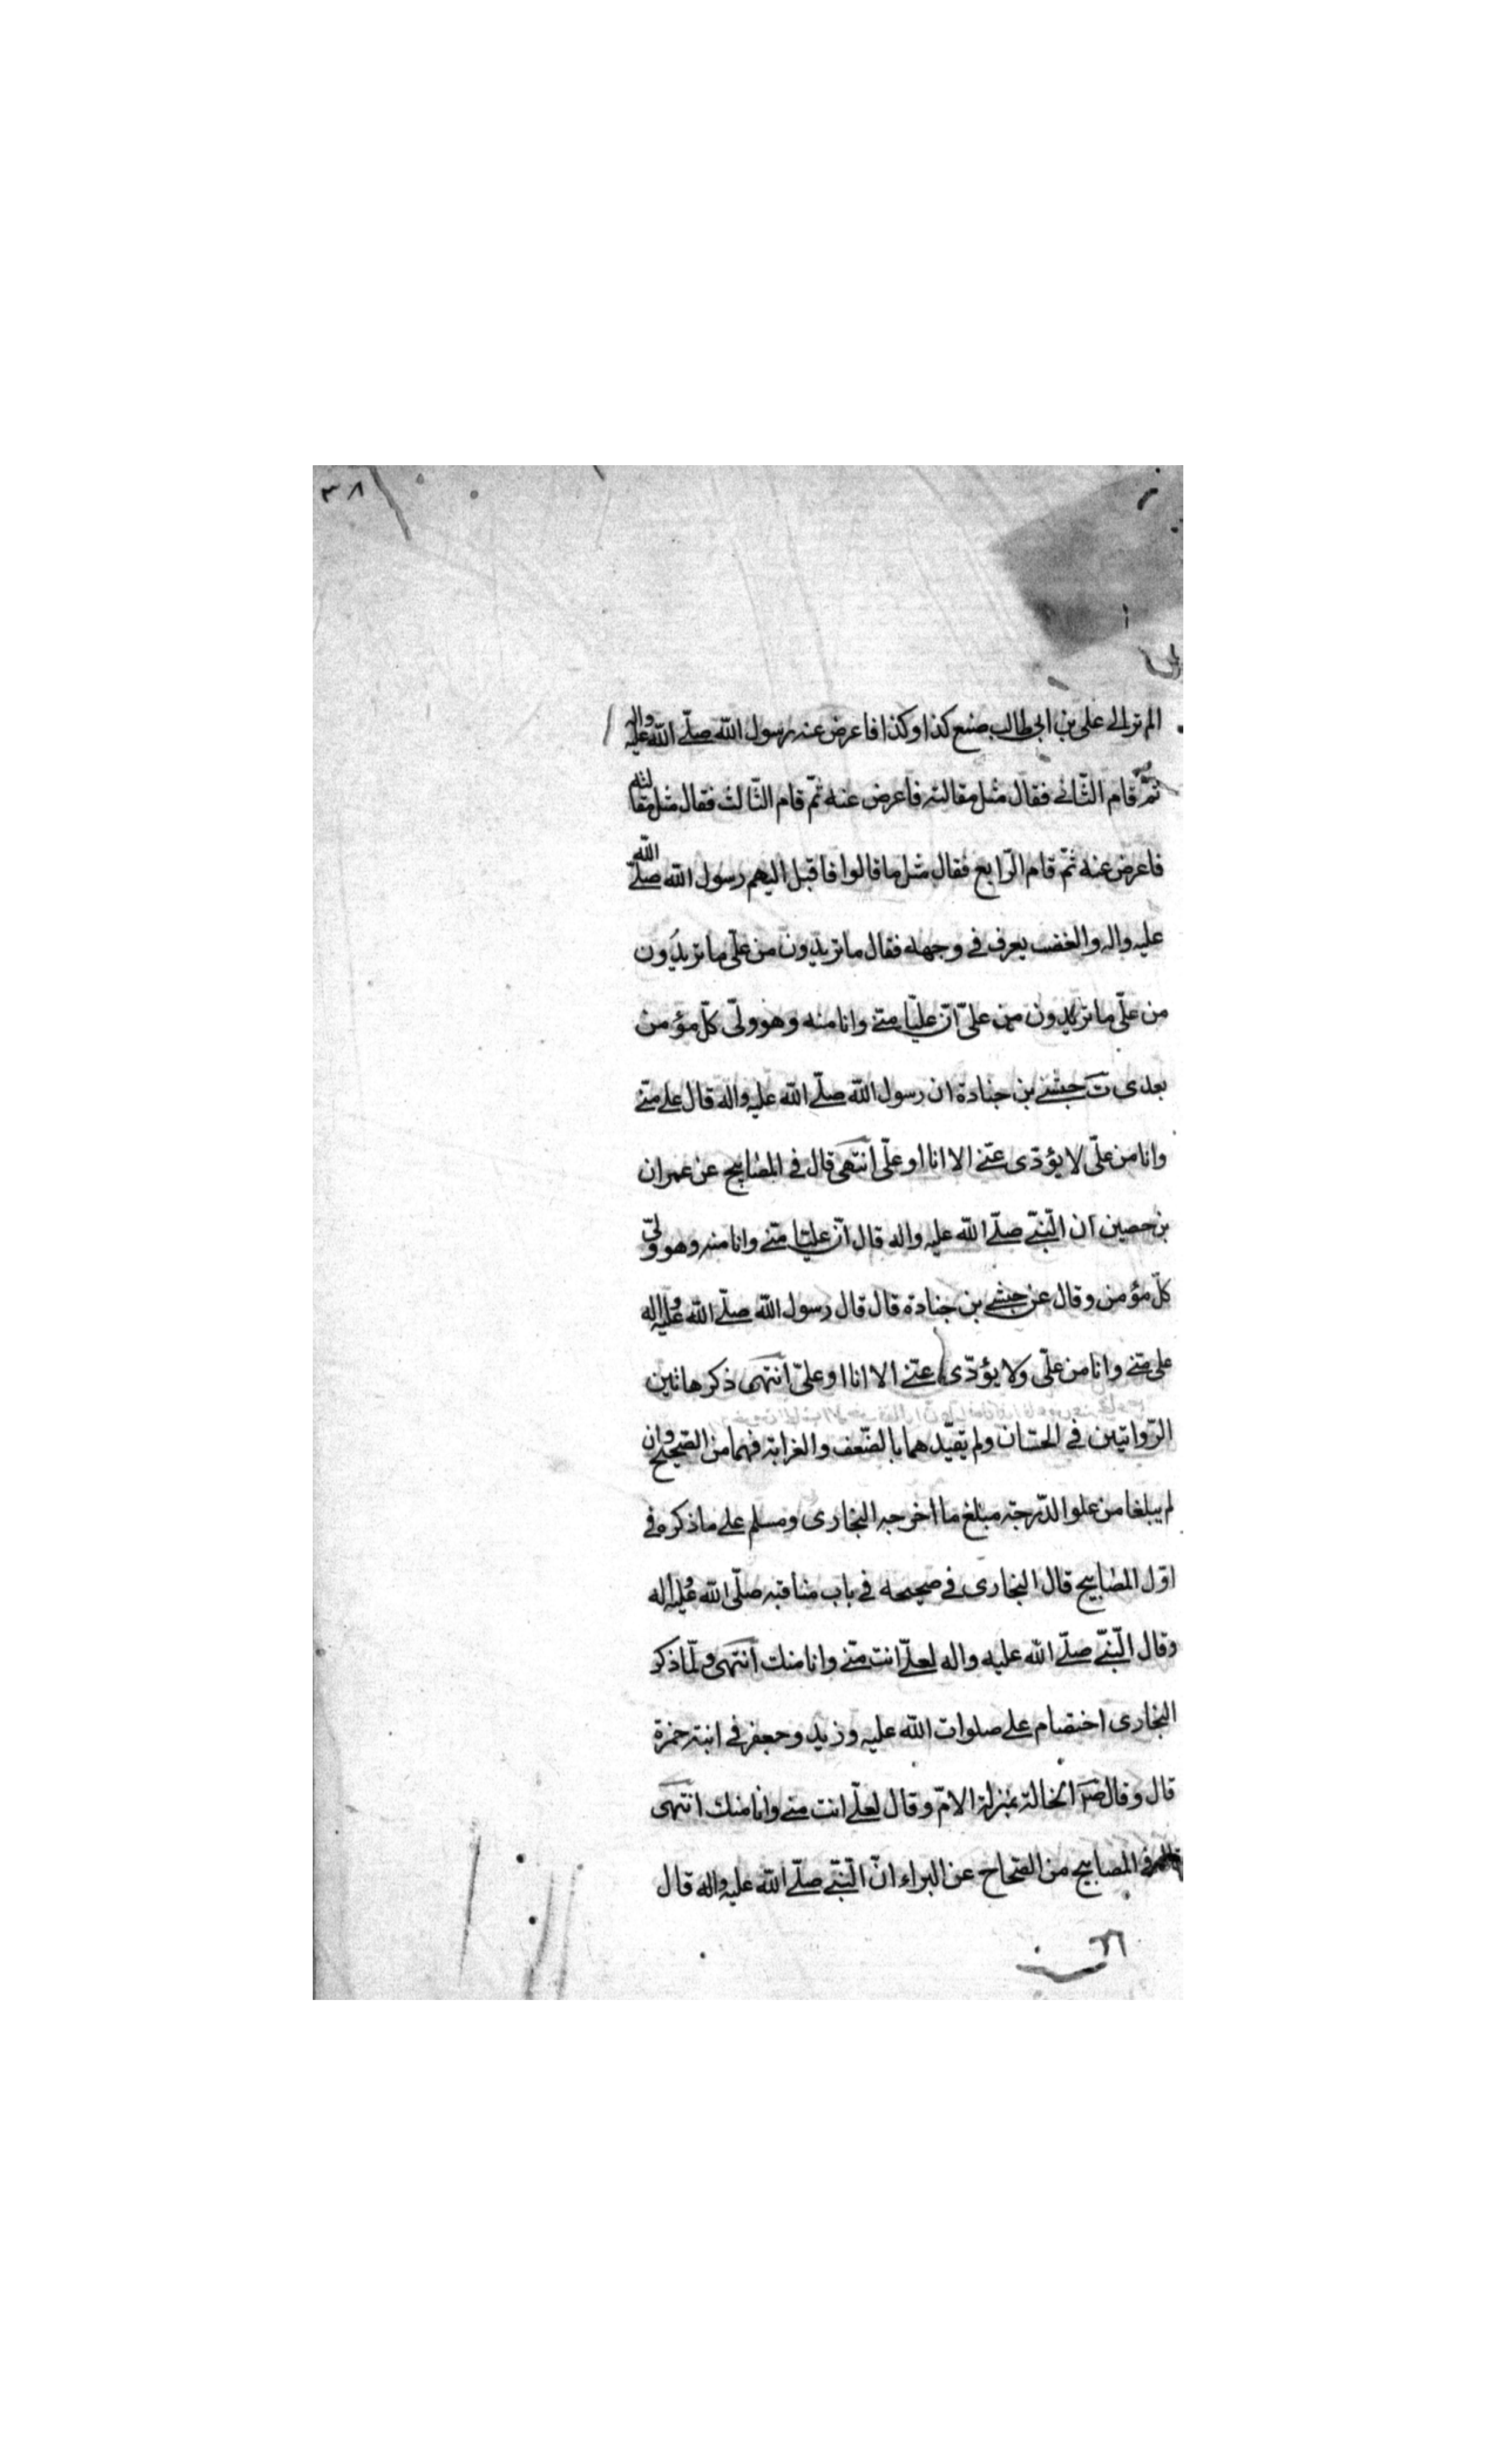 ٣٨
الم تر الى علي بن ابي طالب صنع كذا وكذا فاعرض عنه رسول الله صلّى الله عليه واله
ثمّ قام الثّاني فقال مثل مقالته فاعرض عنه ثمّ قام الثّالث فقال مثل مقالته
فاعرض عنه ثمّ قام الرّابع فقال مثل ما قالوا فاقبل اليهم رسول الله صلّى الله
عليه واله والغضب يعرف في وجهه فقال ما تريدون من علّي ما تريدون
من علّي ما تريدون من علىّ انّ عليّا منّي وانا منه وهو ولّي كلّ مؤمن
بعدى ت حبشي بن جنادة ان رسول الله صلّى الله عليه واله قال علي منّي
وانا من علّي لا يؤدّى عنّي الا انا او علّي انتهى قال في المصابيح عن عمران
بن حصين ان النّبيّ صلّى الله عليه واله قال انّ عليّا منّي وانا منه وهو وليّ
كلّ مؤمن وقال عن حبشي بن جنادة قال قال رسول الله صلّى الله عليه واله
علي منّي وانا من علّي ولا يؤدّى عنّي الا انا او علىّ انتهى ذكر هاتين
الرّوايتين في الحسان ولم يقيّدهما بالضّعف والغرابة فهما من الصّحيح وان
لم يبلغا من علو الدّرجة مبلغ ما اخرجه البخارى ومسلم على ما ذكره في
اوّل المصابيح قال البخارى في صحيحه في باب مناقبه صلّى الله عليه واله
وقال النّبيّ صلّى الله عليه واله لعليّ انت منّي وانا منك انتهى ولمّا ذكر
البخارى اختصام علي صلوات الله عليه وزيد وجعفر في ابنة حمزة
قال وقال ص الخالة بمنزلة الامّ وقال لعليّ انت منّي وانا منك انتهى
في المصابيح من الصّحاح عن البراء انّ النّبيّ صلّى الله عليه واله قال